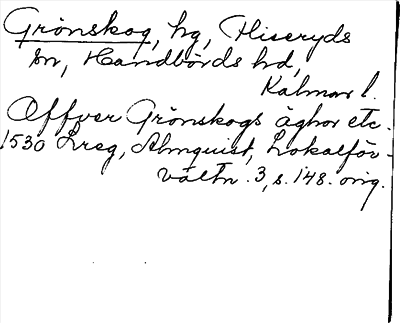 Grönskog, hg, Hiseryds
sn, Handbörds hd,
Kalmar l.
Offver Grönskogs äghor etc.
1530 Lreg, Almquist, Lokalför-
valtn. 3, s. 148. orig.